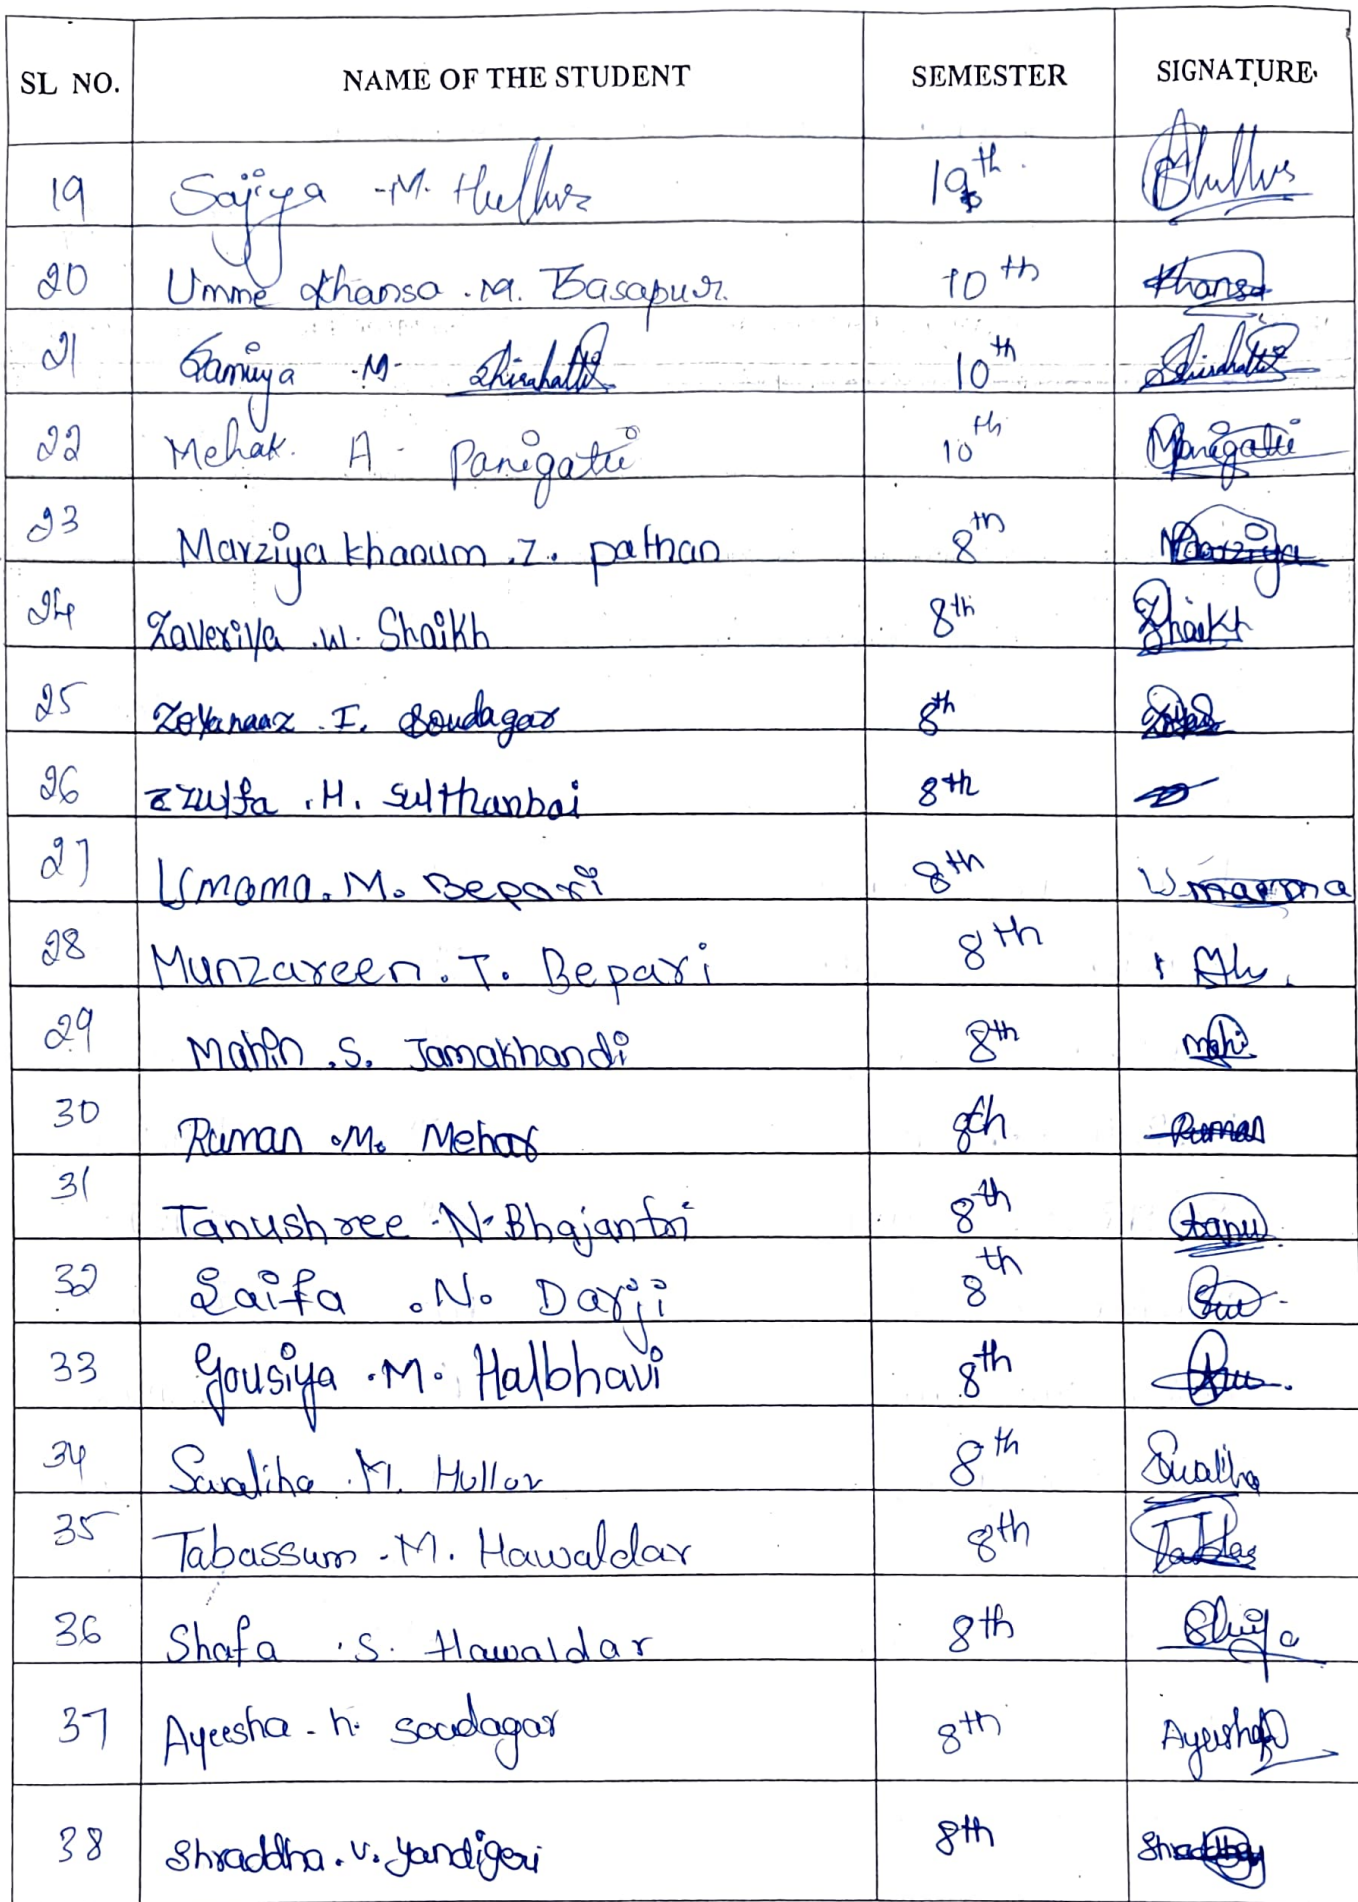 SL NO. NAME OF THE STUDENT SEMESTER SIGNATURE
19 Sajiya .M. Hullur 10th
20 Umme Khansa .M. Basapur. 10th Khansa
21 Samiya .M. Shirahatti 10th Shirahatti
22 Mehak. A. Panigatti 10th Panigatti
23 Marziya khanum .Z. pathan 8th Marziya
24 Zaveriya .W. Shaikh 8th Shaikh
25 Zoyanaaz .I. Soudagar 8th
26 zzulfa .H. sulthanbai 8th
27 Umama. M. Bepari 8th Umama
28 Munzareen. T. Bepari 8th
29 Mahin .S. Jamakhandi 8th Mahi
30 Ruman .M. Mehar 8th Ruman
31 Tanushree .N. Bhajantri 8th tanu
32 Saifa .N. Darji 8th
33 Gousiya .M. Halbhavi 8th
34 Swaliha .M. Hullur 8th Swaliha
35 Tabassum .M. Hawaldar 8th
36 Shafa .S. Hawaldar 8th
37 Ayeesha. h. soudagar 8th Ayeesha
38 Shraddha. V. Yandigeri 8th Shraddha